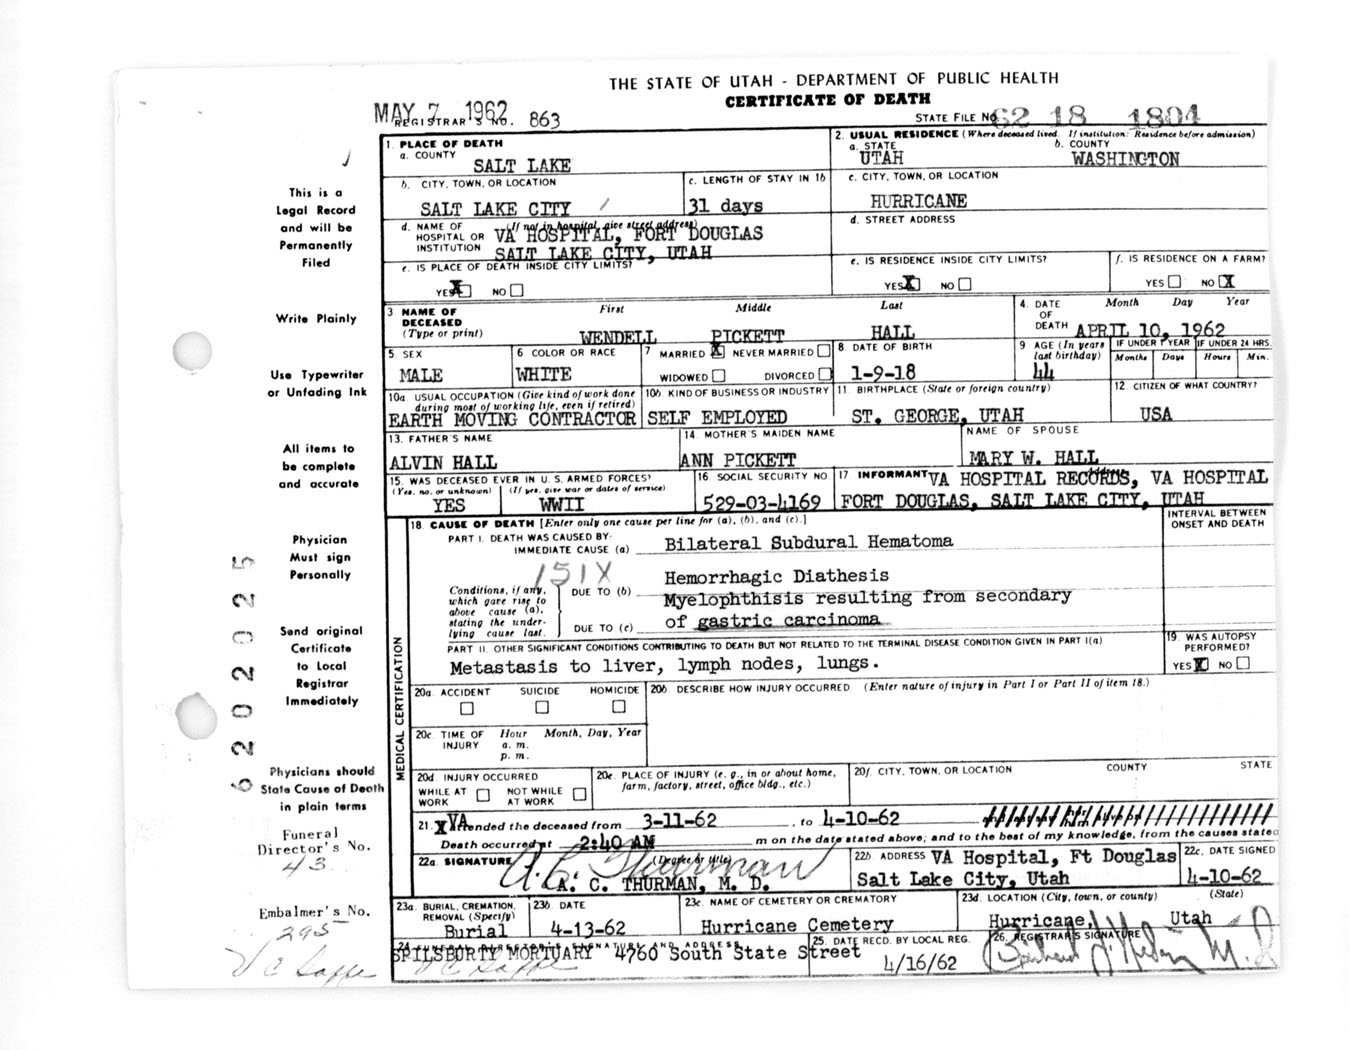 THE STATE OF UTAH - DEPARTMENT OF PUBLIC HEALTH
CERTIFICATE OF DEATH
MAY 7 1962
REGISTRAR'S NO. 863
STATE FILE NO. 62 18 1804
This is a
Legal Record
and will be
Permanently
Filed
Write Plainly
Use Typewriter
or Unfading Ink
All items to
be complete
and accurate
Physician
Must sign
Personally
Send original
Certificate
to Local
Registrar
Immediately
Physicians should
State Cause of Death
in plain terms
Funeral
Director's No.
43
Embalmer's No.
295
62020225
1. PLACE OF DEATH
a. COUNTY SALT LAKE
b. CITY, TOWN, OR LOCATION
SALT LAKE CITY
c. LENGTH OF STAY IN 1b
31 days
d. NAME OF HOSPITAL OR INSTITUTION (If not in hospital, give street address)
VA HOSPITAL, FORT DOUGLAS
SALT LAKE CITY, UTAH
e. IS PLACE OF DEATH INSIDE CITY LIMITS?
YES X NO
2. USUAL RESIDENCE (Where deceased lived. If institution: Residence before admission)
a. STATE UTAH
b. COUNTY WASHINGTON
c. CITY, TOWN, OR LOCATION
HURRICANE
d. STREET ADDRESS
e. IS RESIDENCE INSIDE CITY LIMITS?
YES X NO
f. IS RESIDENCE ON A FARM?
YES NO X
3 NAME OF DECEASED (Type or print)
First Middle Last
WENDELL PICKETT HALL
4. DATE OF DEATH Month Day Year
APRIL 10, 1962
5. SEX
MALE
6 COLOR OR RACE
WHITE
7 MARRIED X NEVER MARRIED
WIDOWED DIVORCED
8 DATE OF BIRTH
1-9-18
9 AGE (In years last birthday)
44
IF UNDER 1 YEAR
Months Days
IF UNDER 24 HRS.
Hours Min.
10a. USUAL OCCUPATION (Give kind of work done during most of working life, even if retired)
EARTH MOVING CONTRACTOR
10b KIND OF BUSINESS OR INDUSTRY
SELF EMPLOYED
11 BIRTHPLACE (State or foreign country)
ST. GEORGE, UTAH
12. CITIZEN OF WHAT COUNTRY?
USA
13. FATHER'S NAME
ALVIN HALL
14 MOTHER'S MAIDEN NAME
ANN PICKETT
NAME OF SPOUSE
MARY W. HALL
15. WAS DECEASED EVER IN U. S. ARMED FORCES?
(Yes, no, or unknown) (If yes, give war or dates of service)
YES WWII
16 SOCIAL SECURITY NO.
529-03-4169
17 INFORMANT VA HOSPITAL RECORDS, VA HOSPITAL
FORT DOUGLAS, SALT LAKE CITY, UTAH
MEDICAL CERTIFICATION
18. CAUSE OF DEATH [Enter only one cause per line for (a), (b), and (c).]
INTERVAL BETWEEN ONSET AND DEATH
PART I. DEATH WAS CAUSED BY:
IMMEDIATE CAUSE (a) Bilateral Subdural Hematoma
151X
Conditions, if any, which gave rise to above cause (a), stating the underlying cause last.
DUE TO (b) Hemorrhagic Diathesis
Myelophthisis resulting from secondary
DUE TO (c) of gastric carcinoma
PART II. OTHER SIGNIFICANT CONDITIONS CONTRIBUTING TO DEATH BUT NOT RELATED TO THE TERMINAL DISEASE CONDITION GIVEN IN PART I(a)
Metastasis to liver, lymph nodes, lungs.
19. WAS AUTOPSY PERFORMED?
YES X NO
20a. ACCIDENT SUICIDE HOMICIDE
20b. DESCRIBE HOW INJURY OCCURRED (Enter nature of injury in Part I or Part II of item 18.)
20c TIME OF INJURY Hour Month, Day, Year
a. m.
p. m.
20d. INJURY OCCURRED
WHILE AT WORK NOT WHILE AT WORK
20e. PLACE OF INJURY (e. g., in or about home, farm, factory, street, office bldg., etc.)
20f. CITY, TOWN, OR LOCATION COUNTY STATE
21. VA attended the deceased from 3-11-62, to 4-10-62
Death occurred at 2:40 AM m on the date stated above; and to the best of my knowledge, from the causes stated
22a. SIGNATURE (Degree or title)
A. C. Thurman
A. C. THURMAN, M. D.
22b ADDRESS VA Hospital, Ft Douglas
Salt Lake City, Utah
22c. DATE SIGNED
4-10-62
23a. BURIAL, CREMATION, REMOVAL (Specify)
Burial
23b. DATE
4-13-62
23c. NAME OF CEMETERY OR CREMATORY
Hurricane Cemetery
23d. LOCATION (City, town, or county) (State)
Hurricane, Utah
24. FUNERAL DIRECTOR'S SIGNATURE AND ADDRESS
SPILSBURY MORTUARY 4760 South State Street
25. DATE RECD. BY LOCAL REG.
4/16/62
26. REGISTRAR'S SIGNATURE